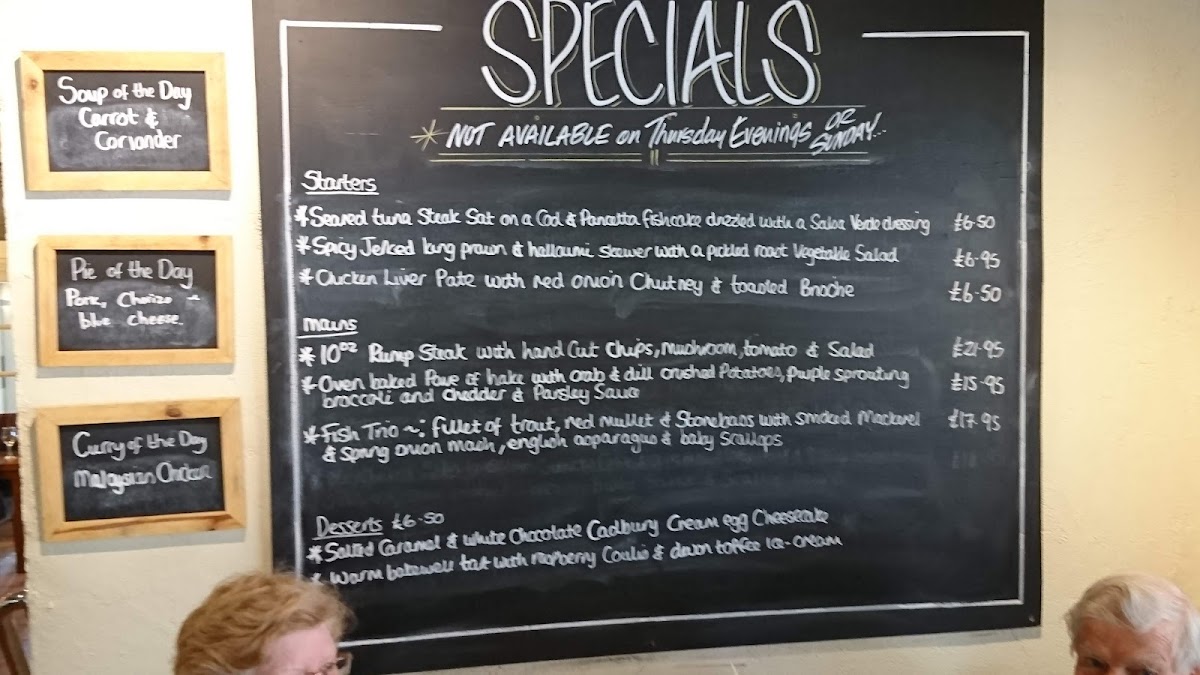 Soup of the Day
Carrot &
Coriander
Pie of the Day
Pork, Chorizo +
blue cheese.
Curry of the Day
Malaysian Chicken
SPECIALS
* NOT AVAILABLE on Thursday Evenings OR SUNDAY...
Starters
* Seared tuna Steak Sat on a Cod & Pancetta fishcake drezled with a Salsa Verde dressing £6.50
* Spicy Jerked king prawn & halloumi skewer with a pickled root Vegetable Salad £6.95
* Chicken Liver Pate with red onion Chutney & toasted Brioche £6.50
Mains
* 10oz Rump Steak with hand Cut Chips, mushroom, tomato & Salad £21.95
* Oven baked Pave of hake with crab & dill crushed Potatoes, purple sprouting £15.95
broccoli and chedder & Parsley Sauce
* Fish Trio ~: fillet of trout, red mullet & Stonebass with smoked Mackerel £17.95
& spring onion mash, english asparagus & baby Scallops
Desserts £6.50
* Salted Caramel & white Chocolate Cadbury Cream egg Cheesecake
* Warm bakewell tart with raspberry Coulis & devon toffee ice-cream